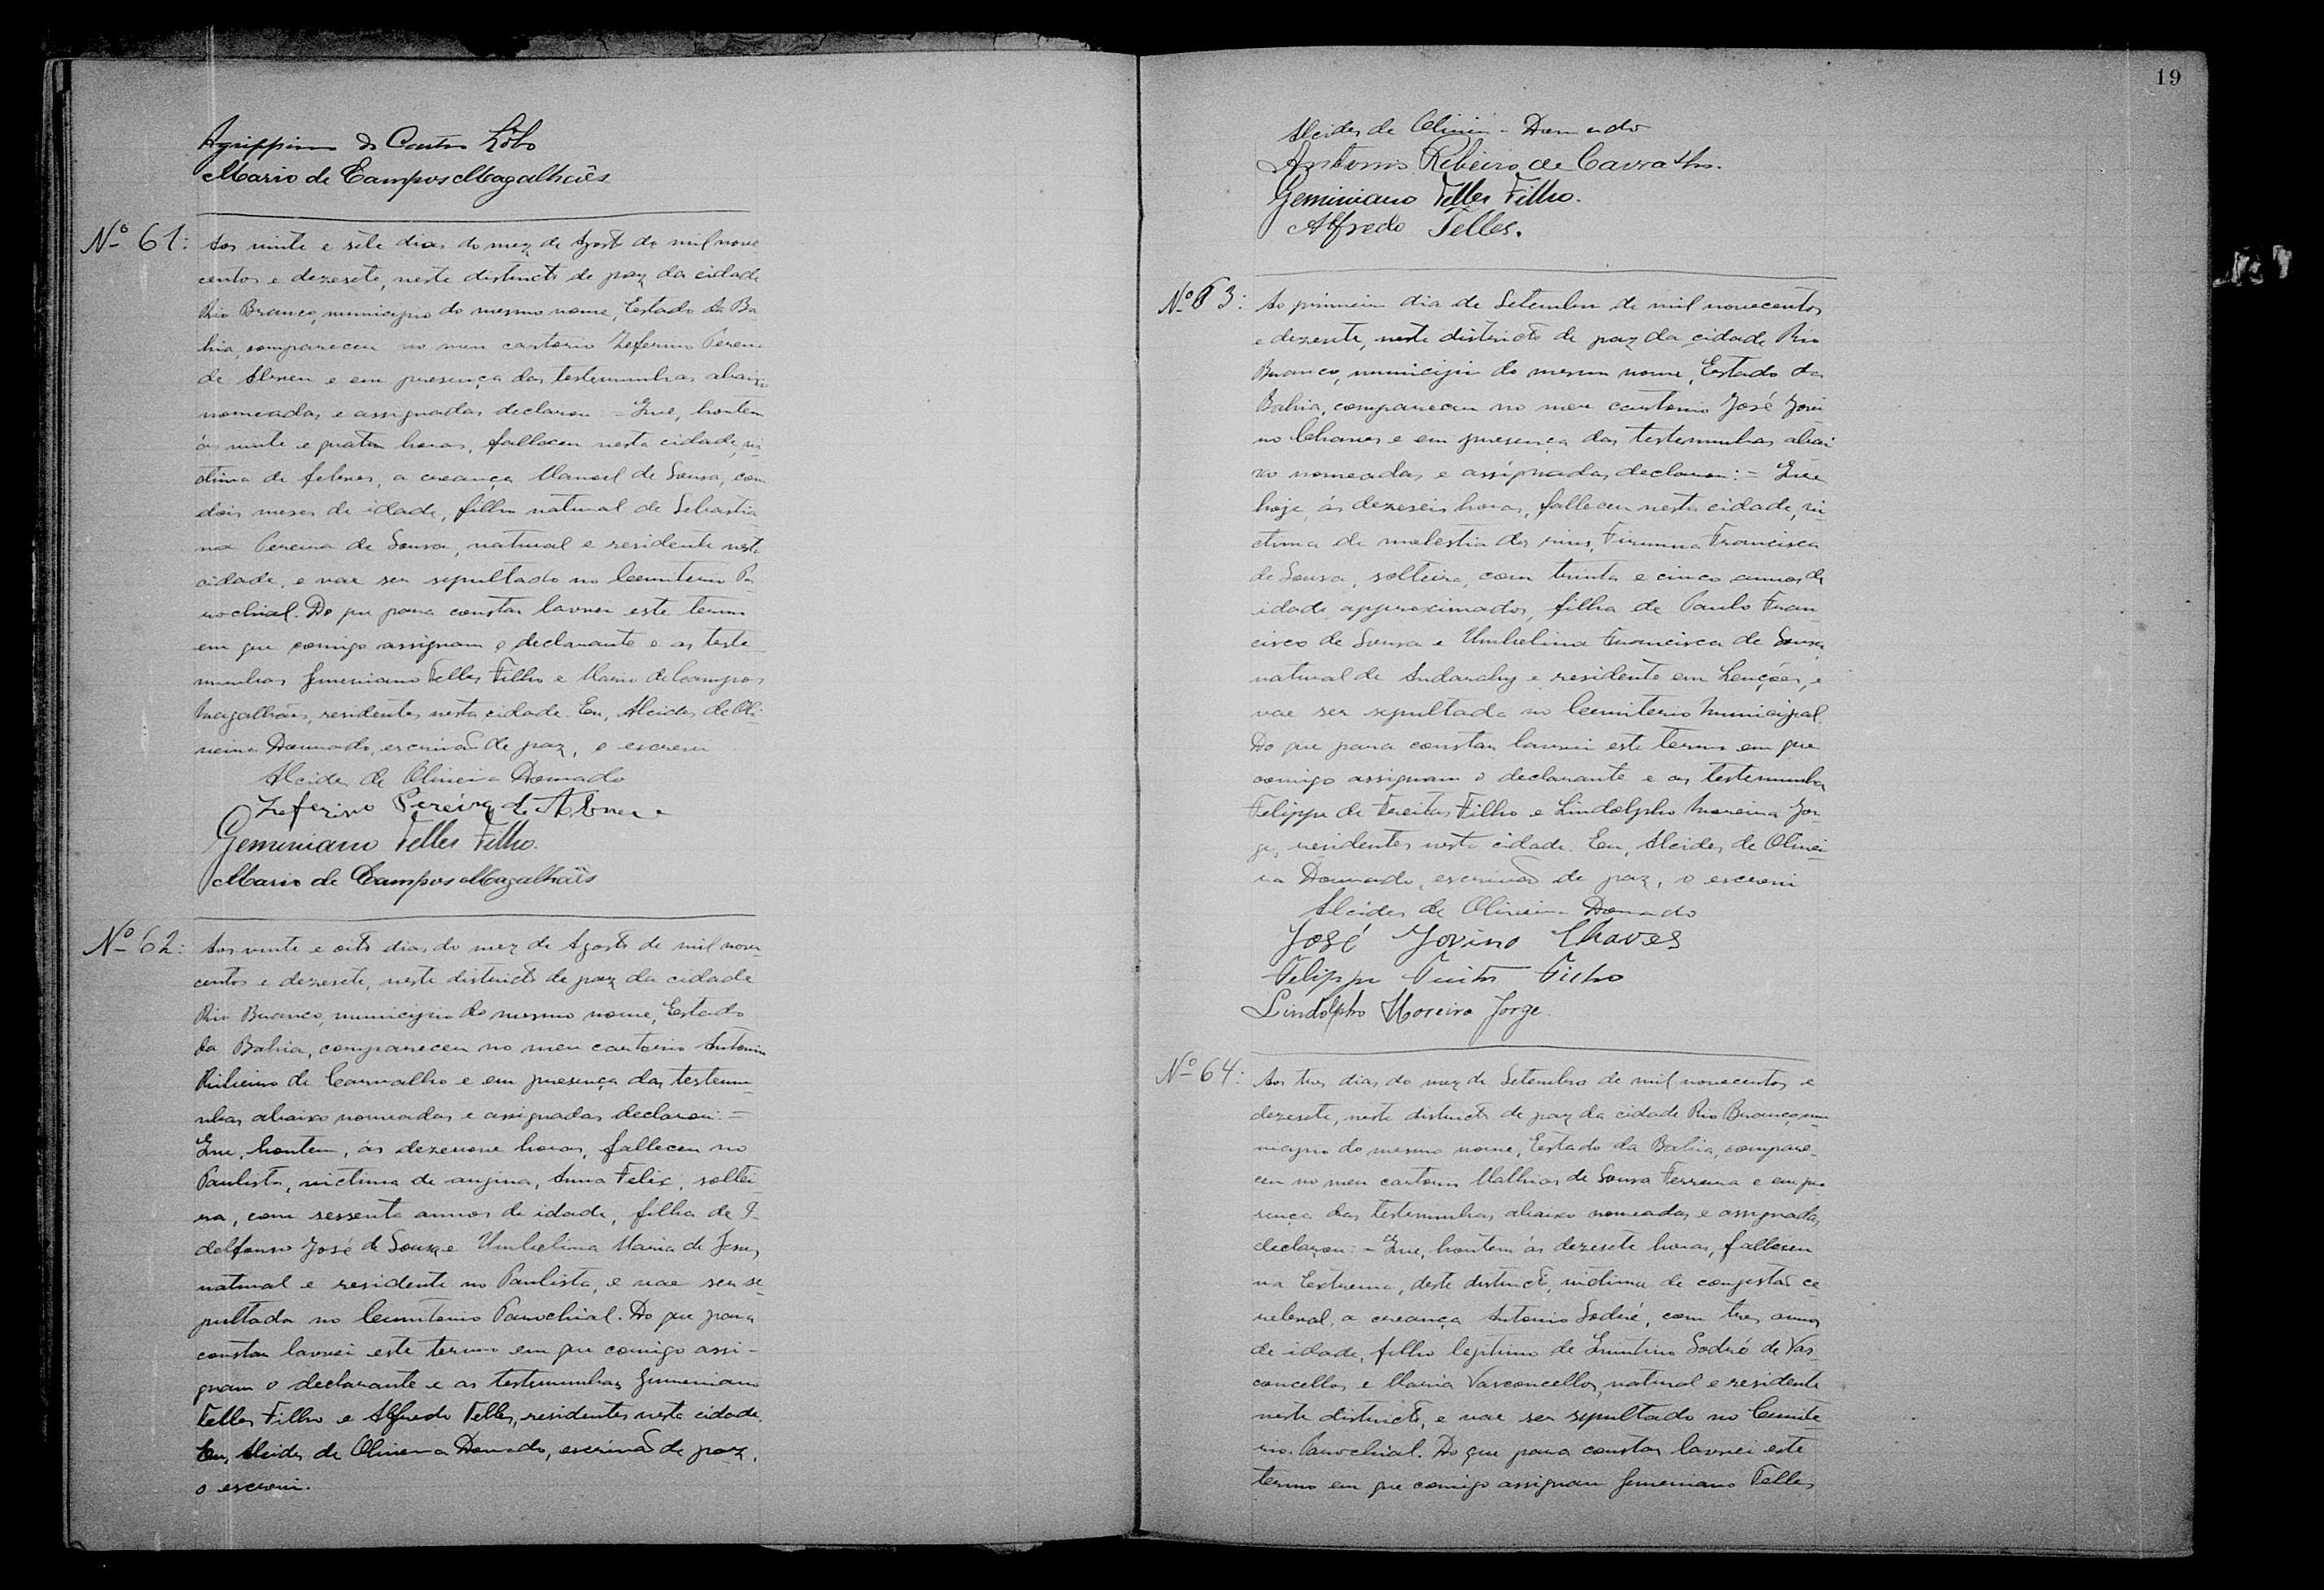 Agrippino de Castro Lôbo
Mario de Campos Magalhães
Nº 61: Aos vinte e sete dias do mez de Agosto de mil nove
centos e dezesete, neste districto de paz da cidade
Rio Branco, municipio do mesmo nome, Estado da Ba-
hia, compareceu no meu cartorio Zeferino Pereira
de e em presença das testemunhas abaixo
nomeadas e assignadas declarou: - Que, hontem
ás vinte e quatro horas, falleceu nesta cidade, vi-
ctima de febres, a creança Manoel de Sousa, com
dois meses de idade, filho natural de Sebastia
na Pereira de Sousa, natural e residente nesta
cidade, e vae ser sepultado no Cemiterio Pa-
rochial. Do que para constar lavrei este termo
em que comigo assignam o declarante e as teste
munhas Geminiano Telles Filho e Mario de Campos
Magalhães, residentes nesta cidade. Eu, Alcides de Oli-
veira Dourado, escrivão de paz, o escrevi
Alcides de Oliveira Dourado
Zeferino Pereira de
Geminiano Telles Filho.
Mario de Campos Magalhães
Nº 62: Aos vinte e oito dias do mez de Agosto de mil nove
centos e dezesete, neste districto de paz da cidade
Rio Branco, municipio do mesmo nome, Estado
da Bahia, compareceu no meu cartorio Antonio
Ribeiro de Carvalho e em presença das testemu
nhas abaixo nomeadas e assignadas declarou: =
Que, hontem, ás dezenove horas, falleceu no
Paulista, victima de angina, Anna Felix, soltei-
ra, com sessenta annos de idade, filha de I-
delfonso José de Sousa e Umbelina Maria de Jesus,
natural e residente no Paulista, e vae ser se
pultada no Cemiterio Parochial. Do que para
constar lavrei este termo em que comigo assi-
gnam o declarante e as testemunhas Geminiano
Telles Filho e Alfredo Telles, residentes nesta cidade.
Eu, Alcides de Oliveira Dourado, escrivão de paz,
o escrevi.
19
Alcides de Oliveira Dourado
Antonio Ribeiro de Carvalho.
Geminiano Telles Filho.
Alfredo Telles.
Nº 63: Ao primeiro dia de Setembro de mil novecentos
e dezesete, neste districto de paz da cidade Rio
Branco, municipio do mesmo nome, Estado da
Bahia, compareceu no meu cartorio José Jovi
no Chaves e em presença das testemunhas abai
xo nomeadas e assignadas declarou: = Que
hoje, ás dezeseis horas, falleceu nesta cidade, vi-
ctima de molestia dos rins, Firmina Francisca
de Sousa, solteira, com trinta e cinco annos de
idade approximados, filha de Paulo Fran-
cisco de Sousa e Umbelina Francisca de Sousa,
natural de Andarahy e residente em Lenções, e
vae ser sepultada no Cemiterio Municipal.
Do que para constar lavrei este termo em que
comigo assignam o declarante e as testemunhas
Felippe de Freitas Filho e Lindolpho Moreira Jor-
ge, residentes nesta cidade. Eu, Alcides de Olivei-
ra Dourado, escrivão de paz, o escrevi
Alcides de Oliveira Dourado
José Jovino Chaves
Felippe Freitas Filho
Lindolpho Moreira Jorge.
Nº 64: Aos tres dias do mez de Setembro de mil novecentos e
dezesete, neste districto de paz da cidade Rio Branco, mu
nicipio do mesmo nome, Estado da Bahia, compare-
ceu no meu cartorio Mathias de Sousa Ferreira e em pre
sença das testemunhas abaixo nomeadas e assignadas
declarou: = Que, hontem ás dezesete horas, falleceu
na Extrema, deste districto, victima de congestão ce
rebral, a creança Antonio Sodré, com tres annos
de idade, filho legitimo de Quintino Sodré de Vas-
concellos e Maria Vasconcellos, natural e residente
neste districto, e vae ser sepultado no Cemite
rio Parochial. Do que para constar lavrei este
termo em que comigo assignam Geminiano Telles